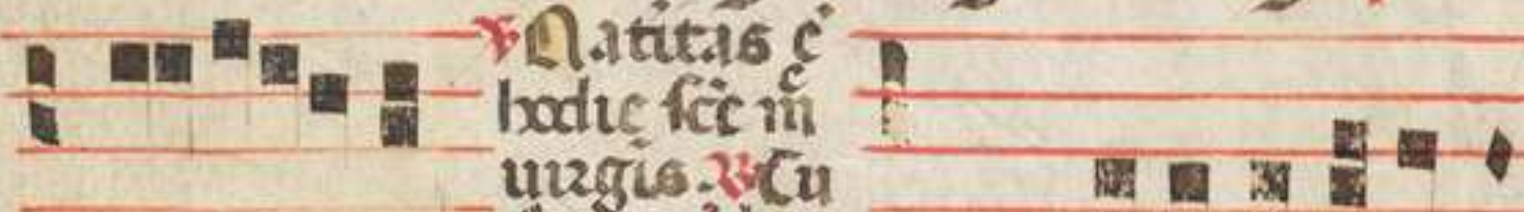 ℣ Natiuitas ē
hodie scē m̄
uirgis. ℣ Cu